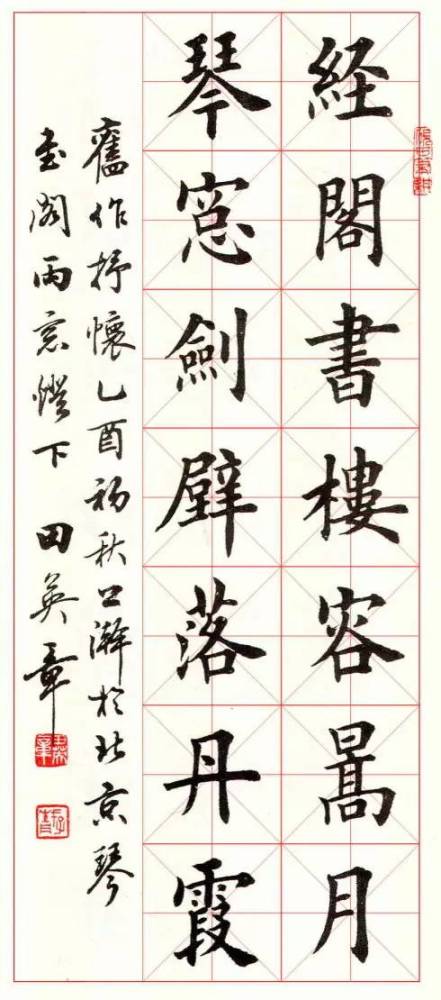 経閣書樓容暠月
琴窓劍壁落丹霞
舊作抒懷乙酉初秋瀚於北京琴
書閣雨窓燈下 田英章